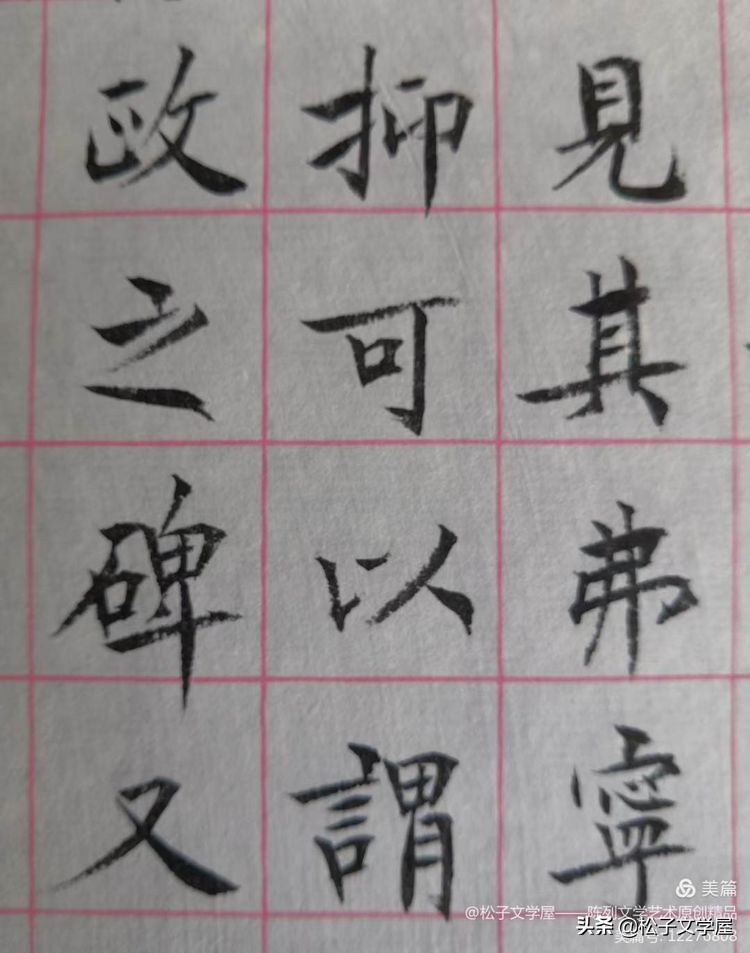 見其弗寧
抑可以謂
政之碑又
美篇
@松子文学屋——陈列文学艺术原创精品
头条 @松子文学屋
美篇号: 12276808